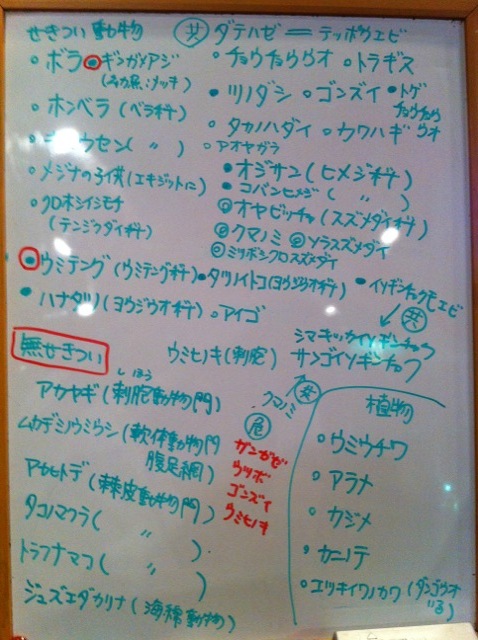 せきつい動物
㋬ ダテハゼ＝テッポウエビ
ボラ
ギンガメアジ
(幼魚:メッキ)
チョウチョウウオ
トラギス
ホンベラ(ベラ科)
ツノダシ
ゴンズイ
トゲチョウチョウウオ
(〃)
タカノハダイ
カワハギ
アオヤガラ
メジナの子供(エキジットに)
オジサン(ヒメジ科)
コバンヒメジ(〃)
クロホシイシモチ
(テンジクダイ科)
オヤビッチャ(スズメダイ科)
クマノミ
ソラスズメダイ
ミツボシクロスズメダイ
ウミテング(ウミテング科)
タツノイトコ(ヨウジウオ科)
イソギンチャクモエビ
ハナタツ(ヨウジウオ科)
アイゴ
共
シマキッカイソギンチャク
サンゴイソギンチャク
無せきつい
ウミヒノキ(刺胞)
共
クマノミ
しほう
アカヤギ(刺胞動物門)
ムカデミノウミウシ(軟体動物門
腹足網)
アカヒトデ(棘皮動物門)
タコノマクラ(〃)
トラフナマコ(〃)
ジュズエダカリナ(海綿動物)
危
ガンガゼ
ウツボ
ゴンズイ
ウミヒノキ
植物
ウミウチワ
アラメ
カジメ
カニノテ
エツキイワノカワ(ダンゴウオ
いる)